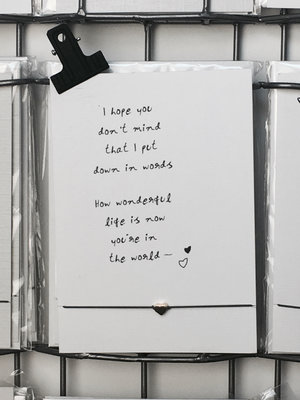 I hope you
don't mind
that I put
down in words
How wonderful
life is now
you're in
the world —